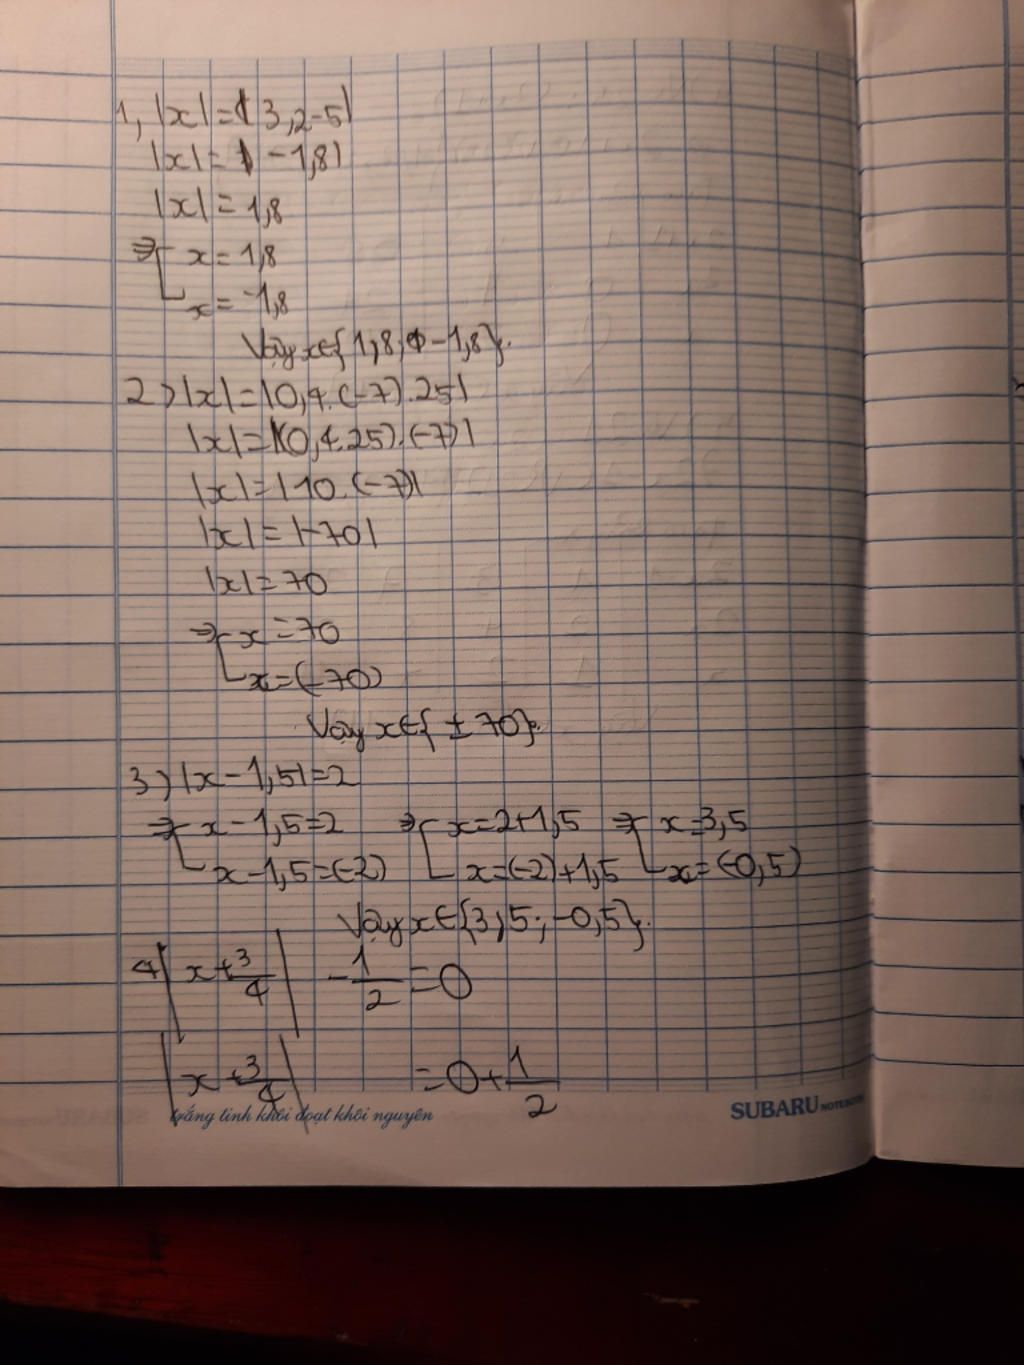 1, |x| = |3,2-5|
|x| = |-1,8|
|x| = 1,8
⇒[ x = 1,8
x = -1,8
Vậy x∈{1,8; -1,8}.
2) |x| = |0,4.(-7).25|
|x| = |(0,4.25).(-7)|
|x| = |10.(-7)|
|x| = |-70|
|x| = 70
⇒[ x = 70
x = (-70)
Vậy x∈{±70}.
3) |x-1,5| = 2
⇒[ x-1,5=2 ⇒[ x=2+1,5 ⇒[ x=3,5
x-1,5=(-2) x=(-2)+1,5 x=(-0,5)
Vậy x∈{3,5; -0,5}.
4) |x+3/4| - 1/2 = 0
|x+3/4| = 0+1/2
trắng tinh khôi đoạt khôi nguyên SUBARU NOTEBOOK